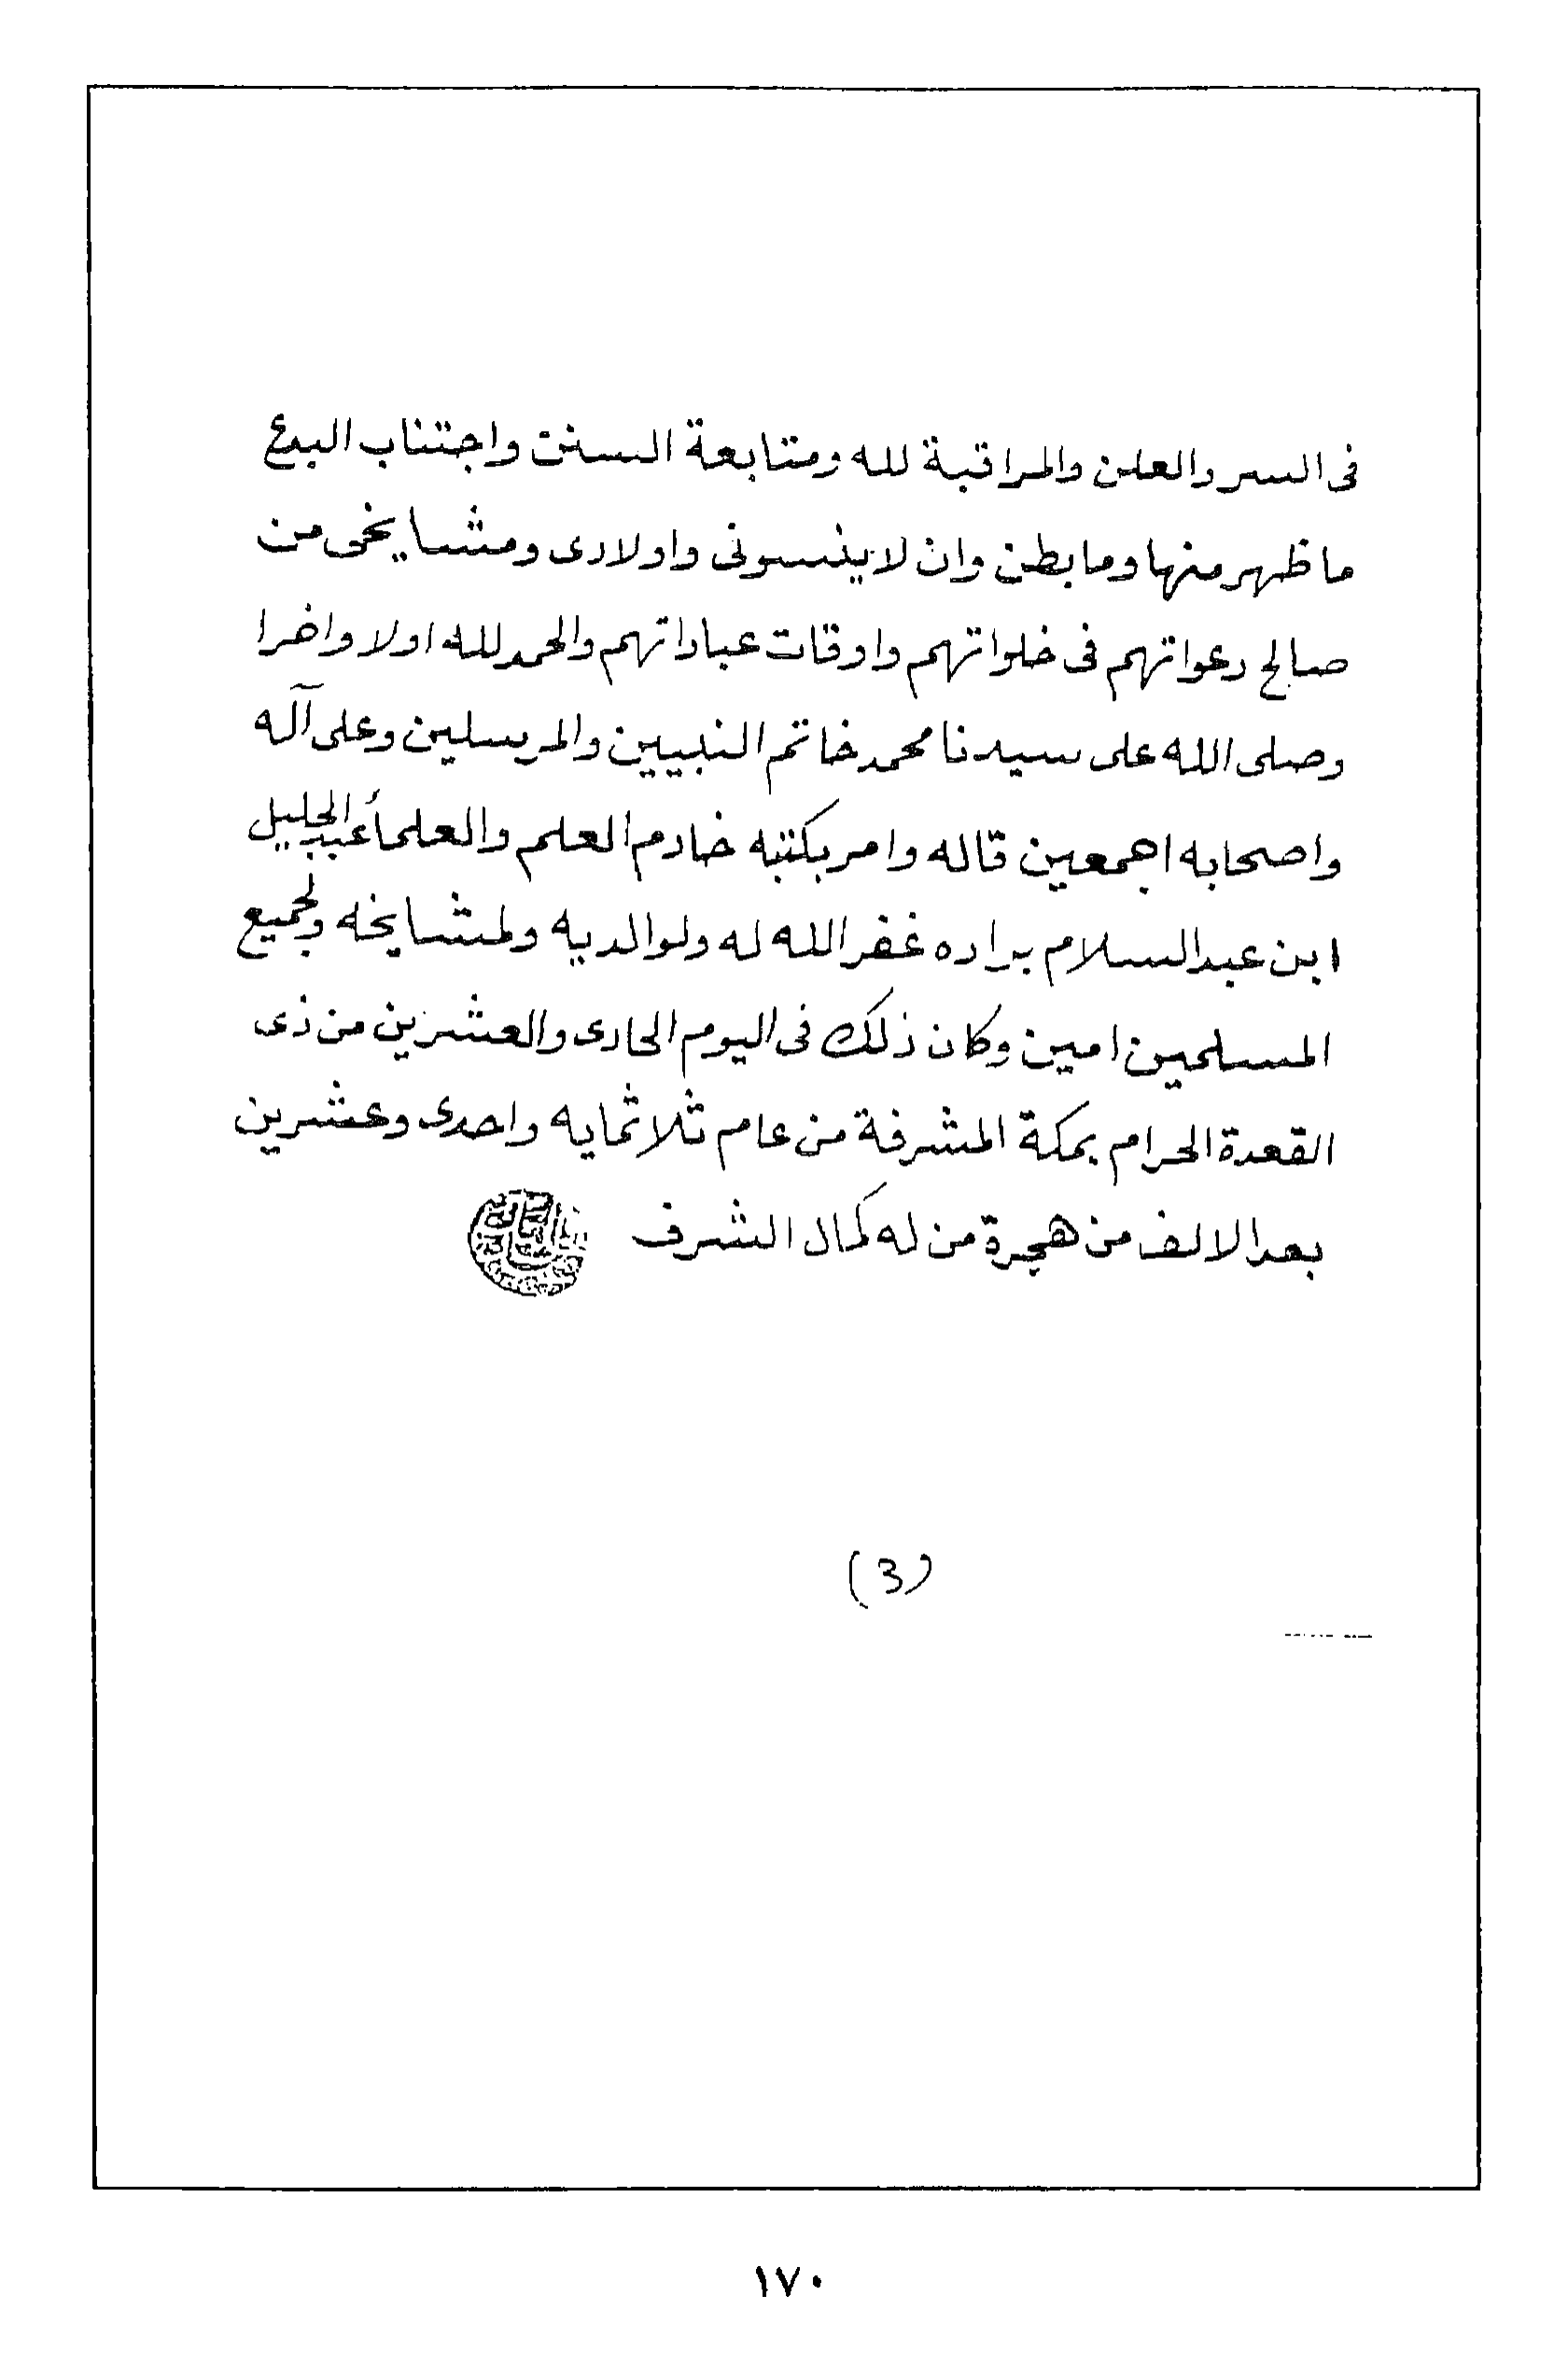 فى السر والعلن والمراقبة لله ومتابعة السنن واجتناب البدع
ما ظهر منها وما بطن وان لا ينسونى واولادى ومشايخى من
صالح دعواتهم فى خلواتهم واوقات عباداتهم والحمد لله اولا واخرا
وصلى الله على سيدنا محمد خاتم النبيين والمرسلين وعلى آله
واصحابه اجمعين قاله وامر بكتبه خادم العلم والعلمأ عبد الجليل
ابن عبد السلام براده غفر الله له ولوالديه ولمشايخه ولجميع
المسلمين امين وكان ذلك فى اليوم الحادى والعشرين من ذى
القعدة الحرام بمكة المشرفة من عام ثلاثمايه واحدى وعشرين
بعد الالف من هجرة من له كمال الشرف
(3)
١٧٠